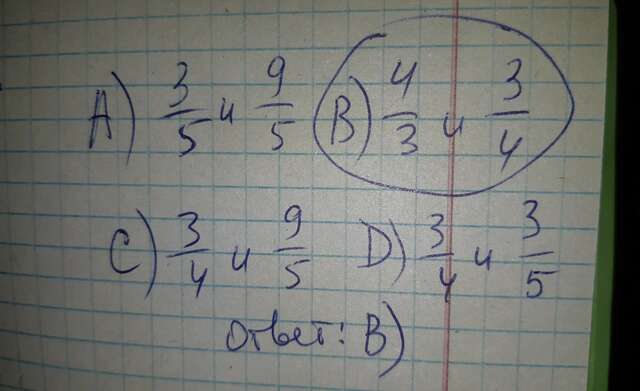 A) 3/5 и 9/5 B) 4/3 и 3/4
C) 3/4 и 9/5 D) 3/4 и 3/5
Ответ: B)